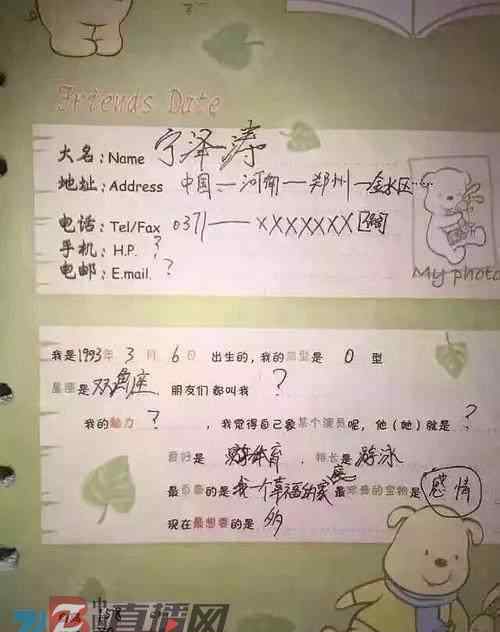 Friends Date
大名:Name 宁泽涛
地址:Address 中国—河南—郑州—金水区……
电话:Tel/Fax 0371——XXXXXXX
手机:H.P. ?
电邮:E.mail. ?
My photo
我是1993年3月6日 出生的,我的血型是 O 型
星座是双鱼座. 朋友们都叫我 ?
我的魅力 ? ,我觉得自己象某个演员呢,他(她)就是 ?
爱好是 体育 , 特长是 游泳
最喜喜的是我一个幸福的家庭 最珍贵的宝物是 感情
现在最想要的是
直播网